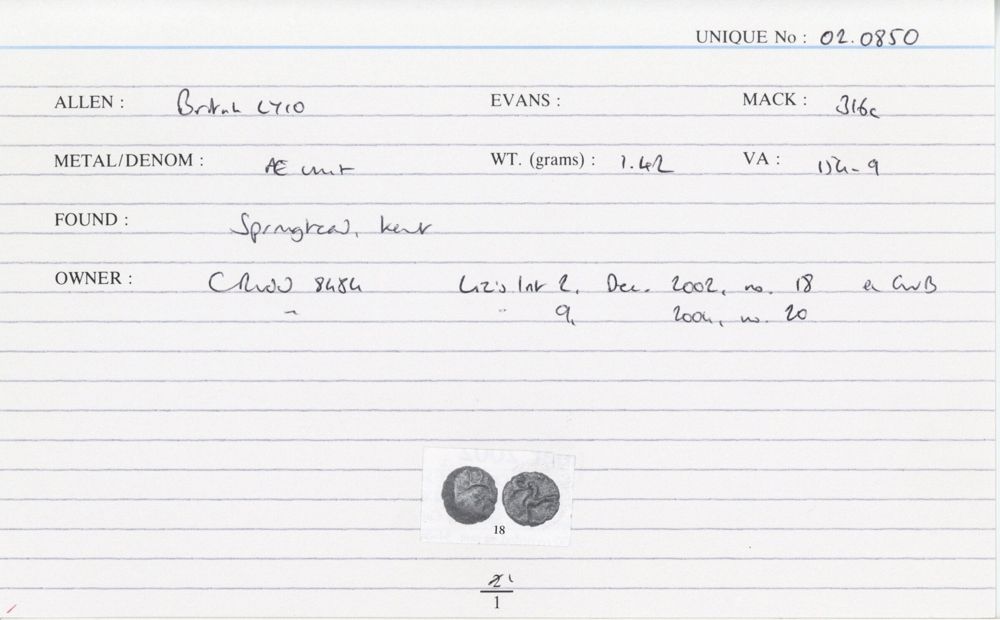 UNIQUE No : 02.0850
ALLEN : British LY10 EVANS : MACK : 316c
METAL/DENOM : Æ unit WT. (grams) : 1.42 VA : 154-9
FOUND : Springhead, Kent
OWNER : 8484 Liz's List 2, Dec. 2002, no. 18 ex CWB
" " 9, 2004, no. 20
18
1